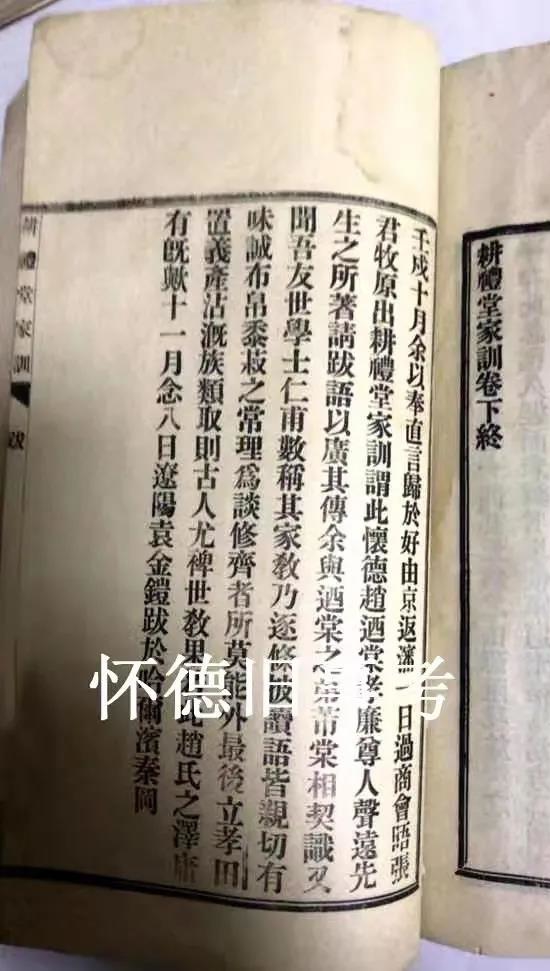 耕禮堂家訓卷下終
壬戌十月余以奉直言歸於好由京返瀋一日過商會晤張
君牧原出耕禮堂家訓謂此懷德趙迺棠孝廉尊人聲遠先
生之所著請跋語以廣其傳余與迺棠之弟芾棠相契識又
聞吾友世學士仁甫數稱其家教乃逐條披讀語皆親切有
味誠布帛黍菽之常理爲談修齊者所莫能外最後立孝田
置義產沾溉族類取則古人尤裨世敎果此趙氏之澤庸
有旣歟十一月念八日遼陽袁金鎧跋於哈爾濱秦岡
耕禮堂家訓 跋
怀德旧事考